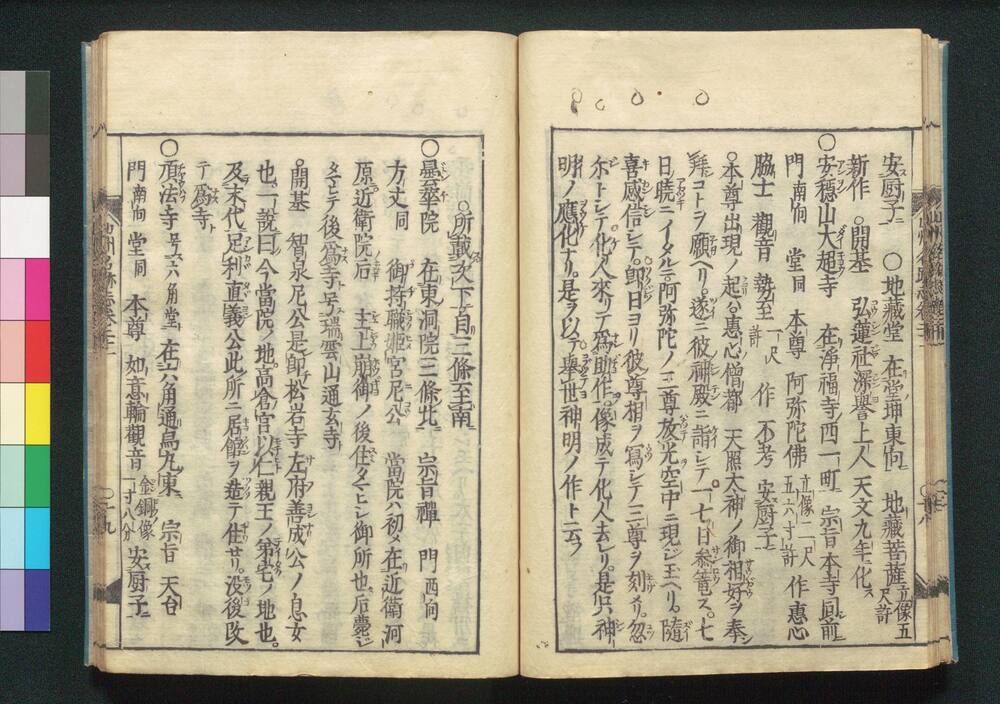 安厨子ニ 〇地藏堂 在堂坤東向 地藏菩薩 立像五尺許
新作 〇開基 弘蓮社深譽上人天文九年ニ化ス
〇安穩山大超寺 在浄福寺西一町 宗旨本寺同前
門南向 堂同 本尊 阿弥陀佛 立像二尺五六寸許 作惠心
脇士 觀音 勢至 一尺許 作 不考 安厨子ニ
〇本尊出現ノ起ハ惠心僧都 天照大神ノ御相好ヲ奉
拜コトヲ願ヘリ。遂ニ彼神殿ニ詣シテ一七日參篭ス。七
日曉ニイタルニ阿弥陀ノ三尊放光空中ニ現ジ玉ヘリ。隨
喜感信シテ。即日ヨリ彼尊相ヲ寫シテ三尊ヲ刻メリ。忽
尓トシテ化人來リテ爲助作。像成テ化人去レリ。是只神
明ノ應化ナリ。是ヲ以テ舉世神明ノ作ト云フ
〇所載次下自三條至南
〇曇華院 在東洞院三條北ニ 宗旨禪 門西向
方丈同 御持職姫宮尼公 當院ハ初メ在近衛河
原近衛院后 主上崩御ノ後住タマヒシ御所也。后薨ジ
タマヒテ後爲寺号瑞雲山通玄寺
〇開基 智泉尼公是即松岩寺左府善成公ノ息女
也。一說曰今當院ノ地高倉宮以仁親王ノ第宅ノ地也。
及末代足利直義公此所ニ居館ヲ造テ住セリ。没後改
テ爲寺ト
〇頂法寺 号六角堂 在六角通烏丸東ニ 宗旨 天台
門南向 堂同 本尊 如意輪觀音 金銅像一寸八分 安厨子ニ
山州名跡志卷之二十一
〇十九